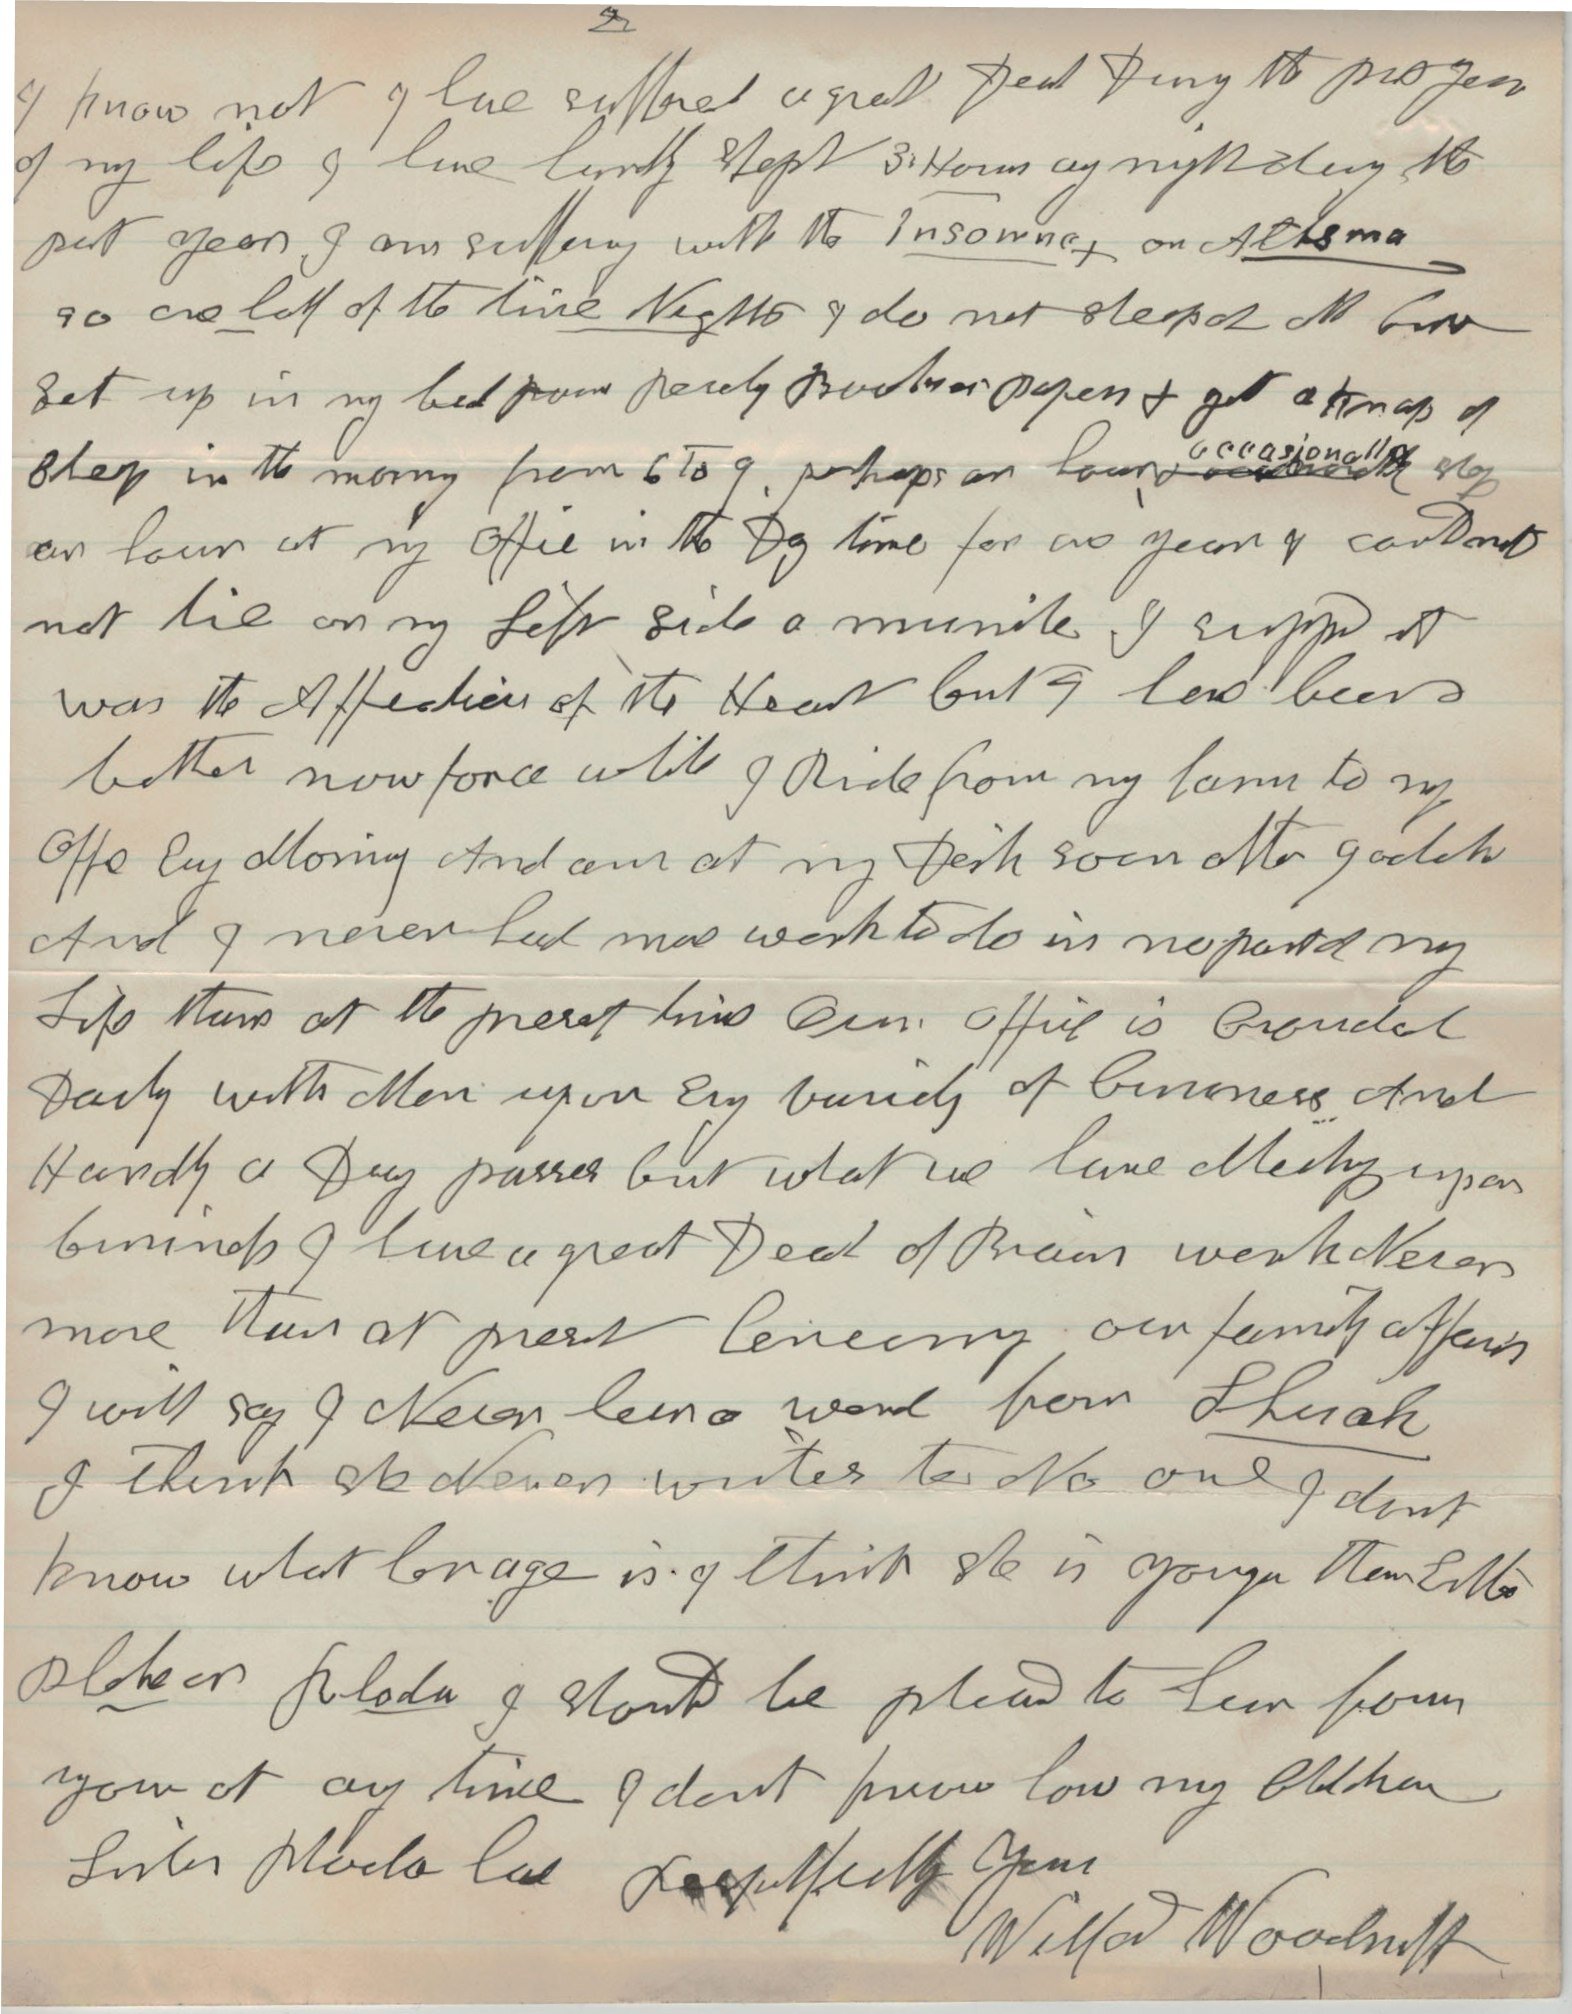 2
I know not I have suffered a great Deal During the past year
of my life I have hardly slept 3 Hours any night during the
past year I am suffering with the Insomna + or Athsma
so one half of the time Nights I do not sleep at all but
set up in my bed read Books or papers & get a nap of
sleep in the morning from 6 to 9 perhaps an hour & occasionally sleep
an hour at my Office in the Day time for one year I could not
not lie on my Left side a munite I supposed it
was the Affection of the Heart but I have been
better now for a while I Ride from my farm to my
Office Evry Morning And am at my Desk soon after 9 oclok
And I never had more work to do in no part of my
Life than at the present time Our office is Crouded
Daily with Men upon Evry variety of buisness And
Hardly a Day passes but what we have Meetings upon
buisness I have a great Deal of Brain work Never
more than at present Concerning our family affairs
I will say I Never hear a word from Shuah
I think she Never writes to No one I dont
know what her age is I think she is younger than
I should be pleased to hear from
you at any time I dont know how my Children
Sister Phoebe had Respectfully Yours
Wilford Woodruff